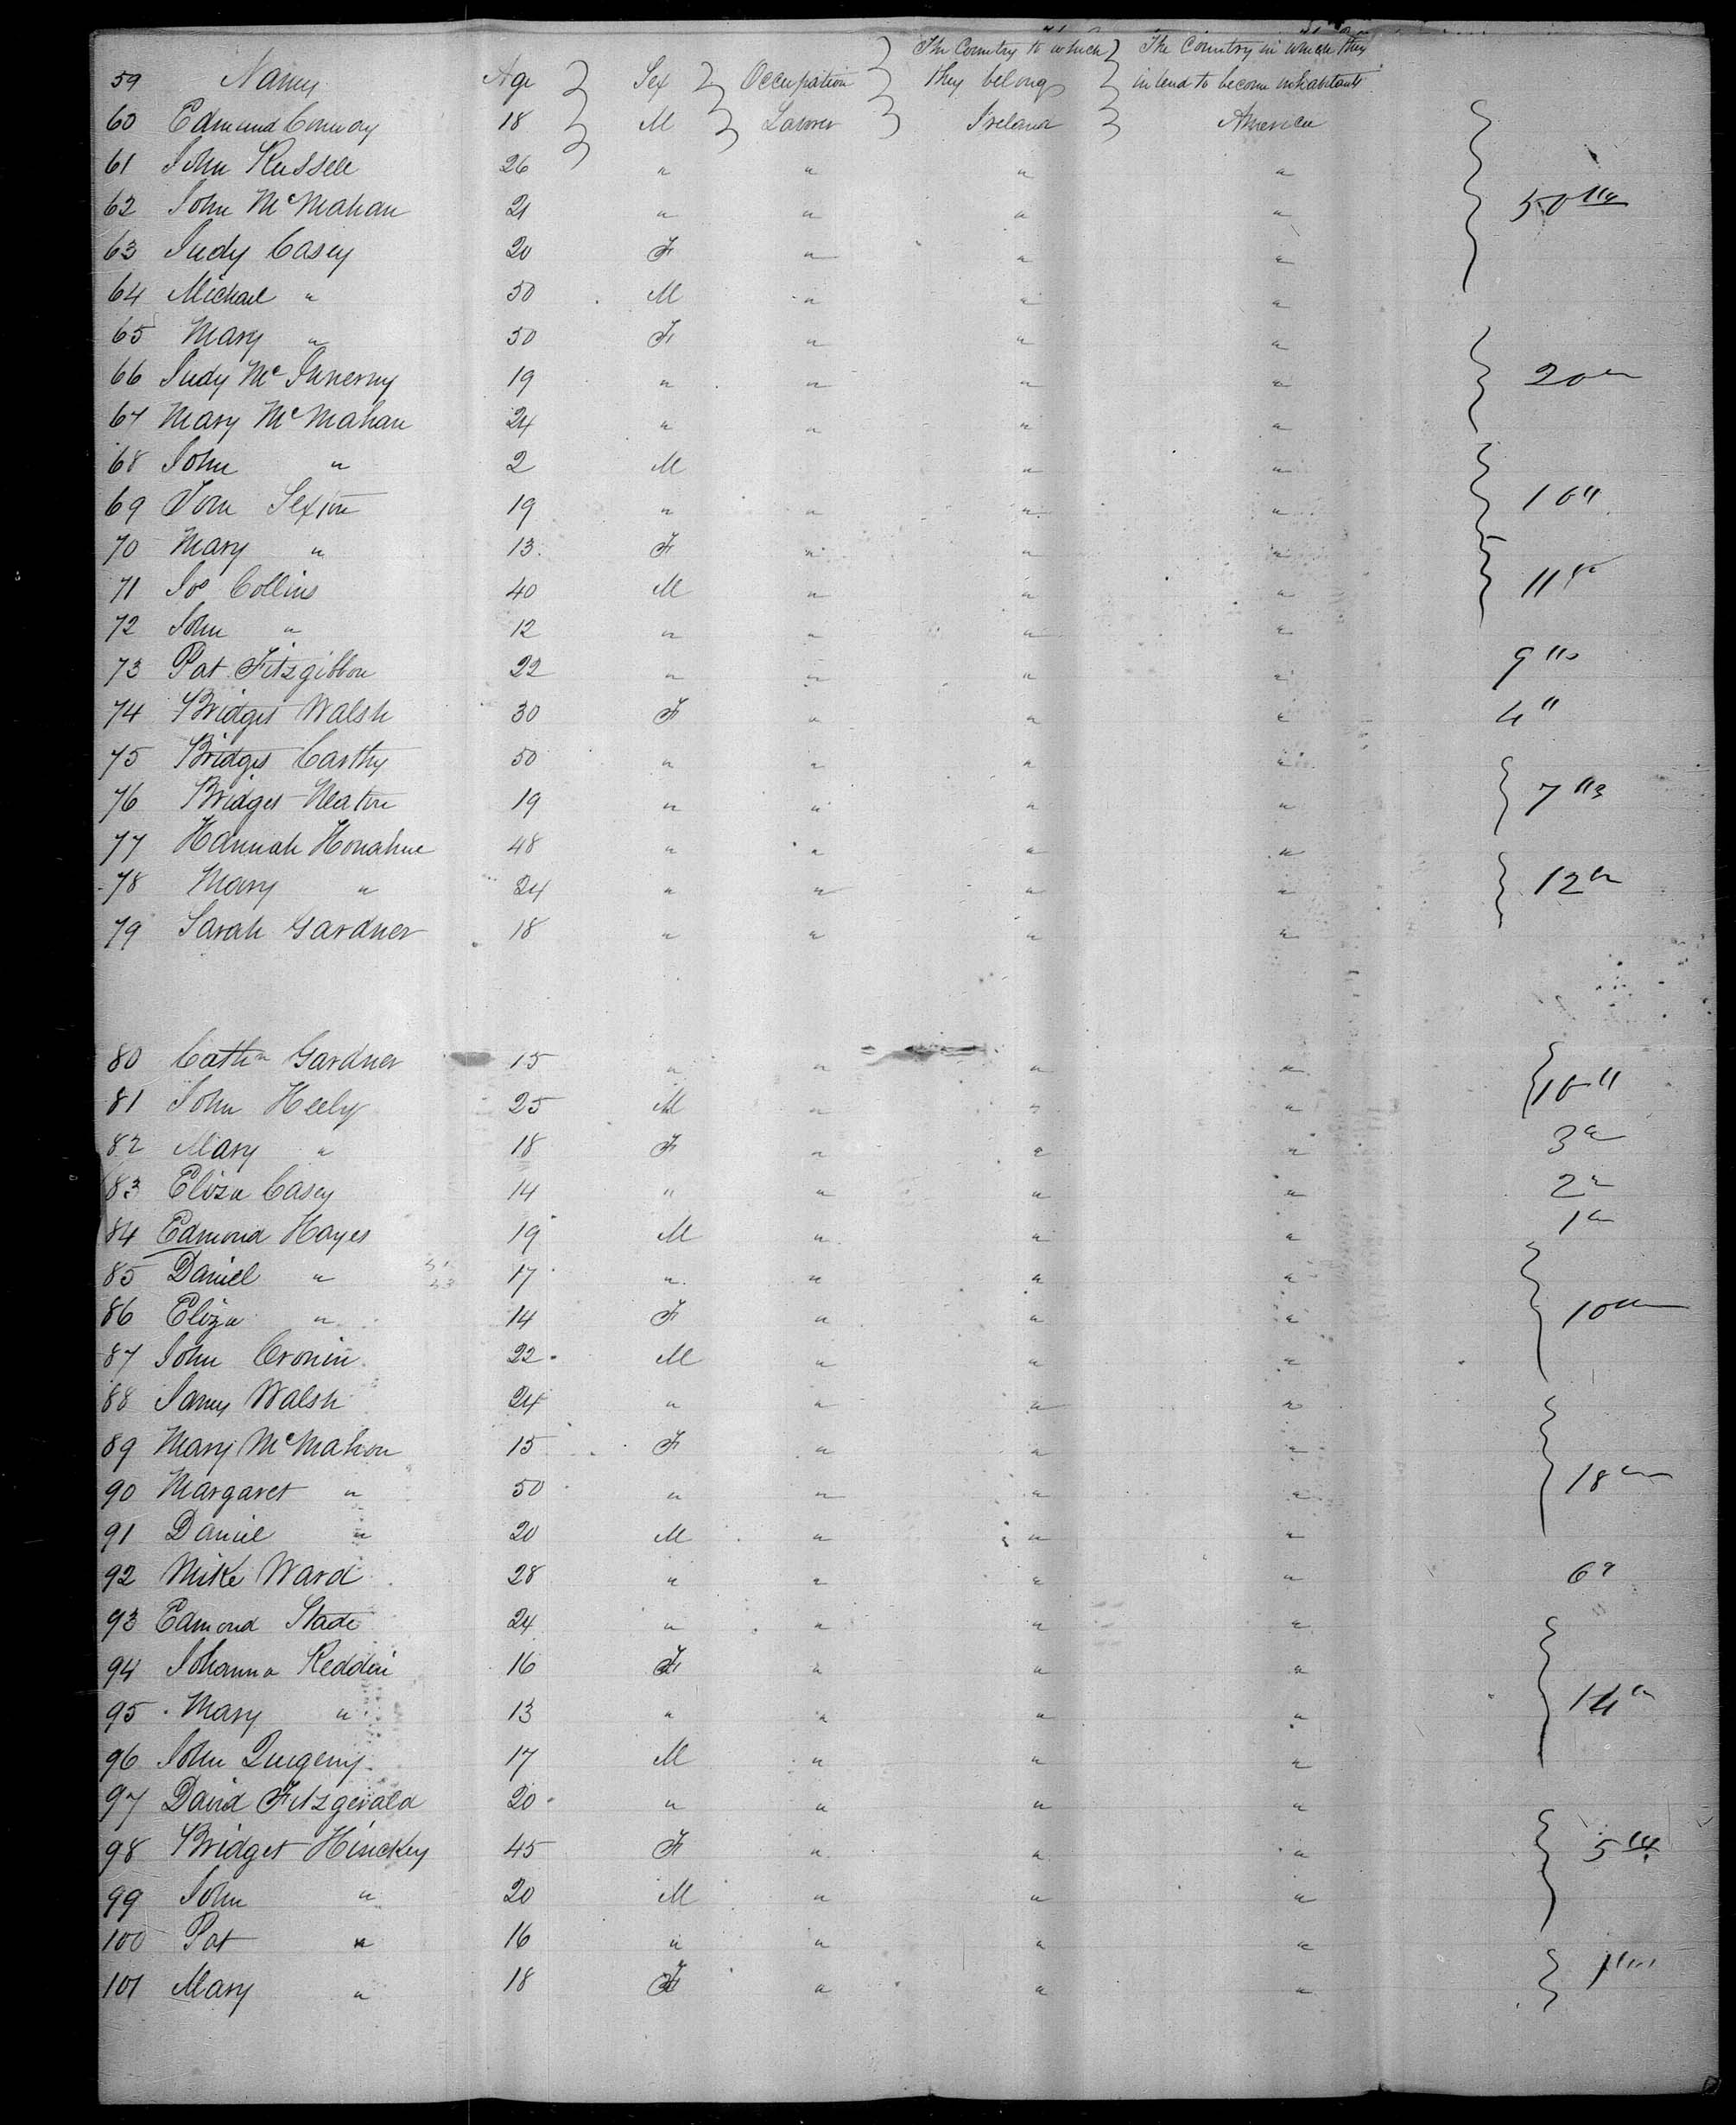 The Country to which } The Country in which they
59 Names Age } Sex } Occupation } they belong } intend to become inhabitants
60 Edmund Conway 18 } M } Laborer } Ireland } America
61 John Russell 26 " " " "
62 John McMahan 21 " " " " 50
63 Judy Casey 20 F " " "
64 Michael " 50 M " " "
65 Mary " 50 F " " "
66 Judy McInnerny 19 " " " " 20
67 Mary McMahan 24 " " " "
68 John " 2 M " "
69 Tom Sexton 19 " " " " 10"
70 Mary " 13 F " " "
71 Jos Collins 40 M " " " 11
72 John " 12 " " " "
73 Pat Fitzgibbon 22 " " " " 9
74 Bridget Walsh 30 F " " " 4"
75 Bridget Carthy 50 " " " "
76 Bridget 19 " " " " 7
77 Hannah Honahue 48 " " " "
78 Mary " 24 " " " " 12
79 Sarah Gardner 18 " " " "
80 Cathn Gardner 15 " " " "
81 John Heely 25 M " " " 10"
82 Mary " 18 F " " " 3"
83 Eliza Casey 14 " " " " 2"
84 Edmond Hayes 19 M " " " 1"
85 Daniel " 17 " " " "
86 Eliza " 14 F " " " 10
87 John Cronin 22 M " " "
88 James Walsh 24 " " " "
89 Mary McMahon 15 F " " "
90 Margaret " 50 " " " " 18
91 Daniel " 20 M " " "
92 Mike Ward 28 " " " " 6
93 Edmond Slade 24 " " " "
94 Johanna Reddin 16 F " " "
95 Mary " 13 " " " " 14
96 John 17 M " " "
97 David Fitzgerald 20 " " " "
98 Bridget Hinckey 45 F " " " 5
99 John " 20 M " " "
100 Pat " 16 " " " "
101 Mary " 18 F " " "